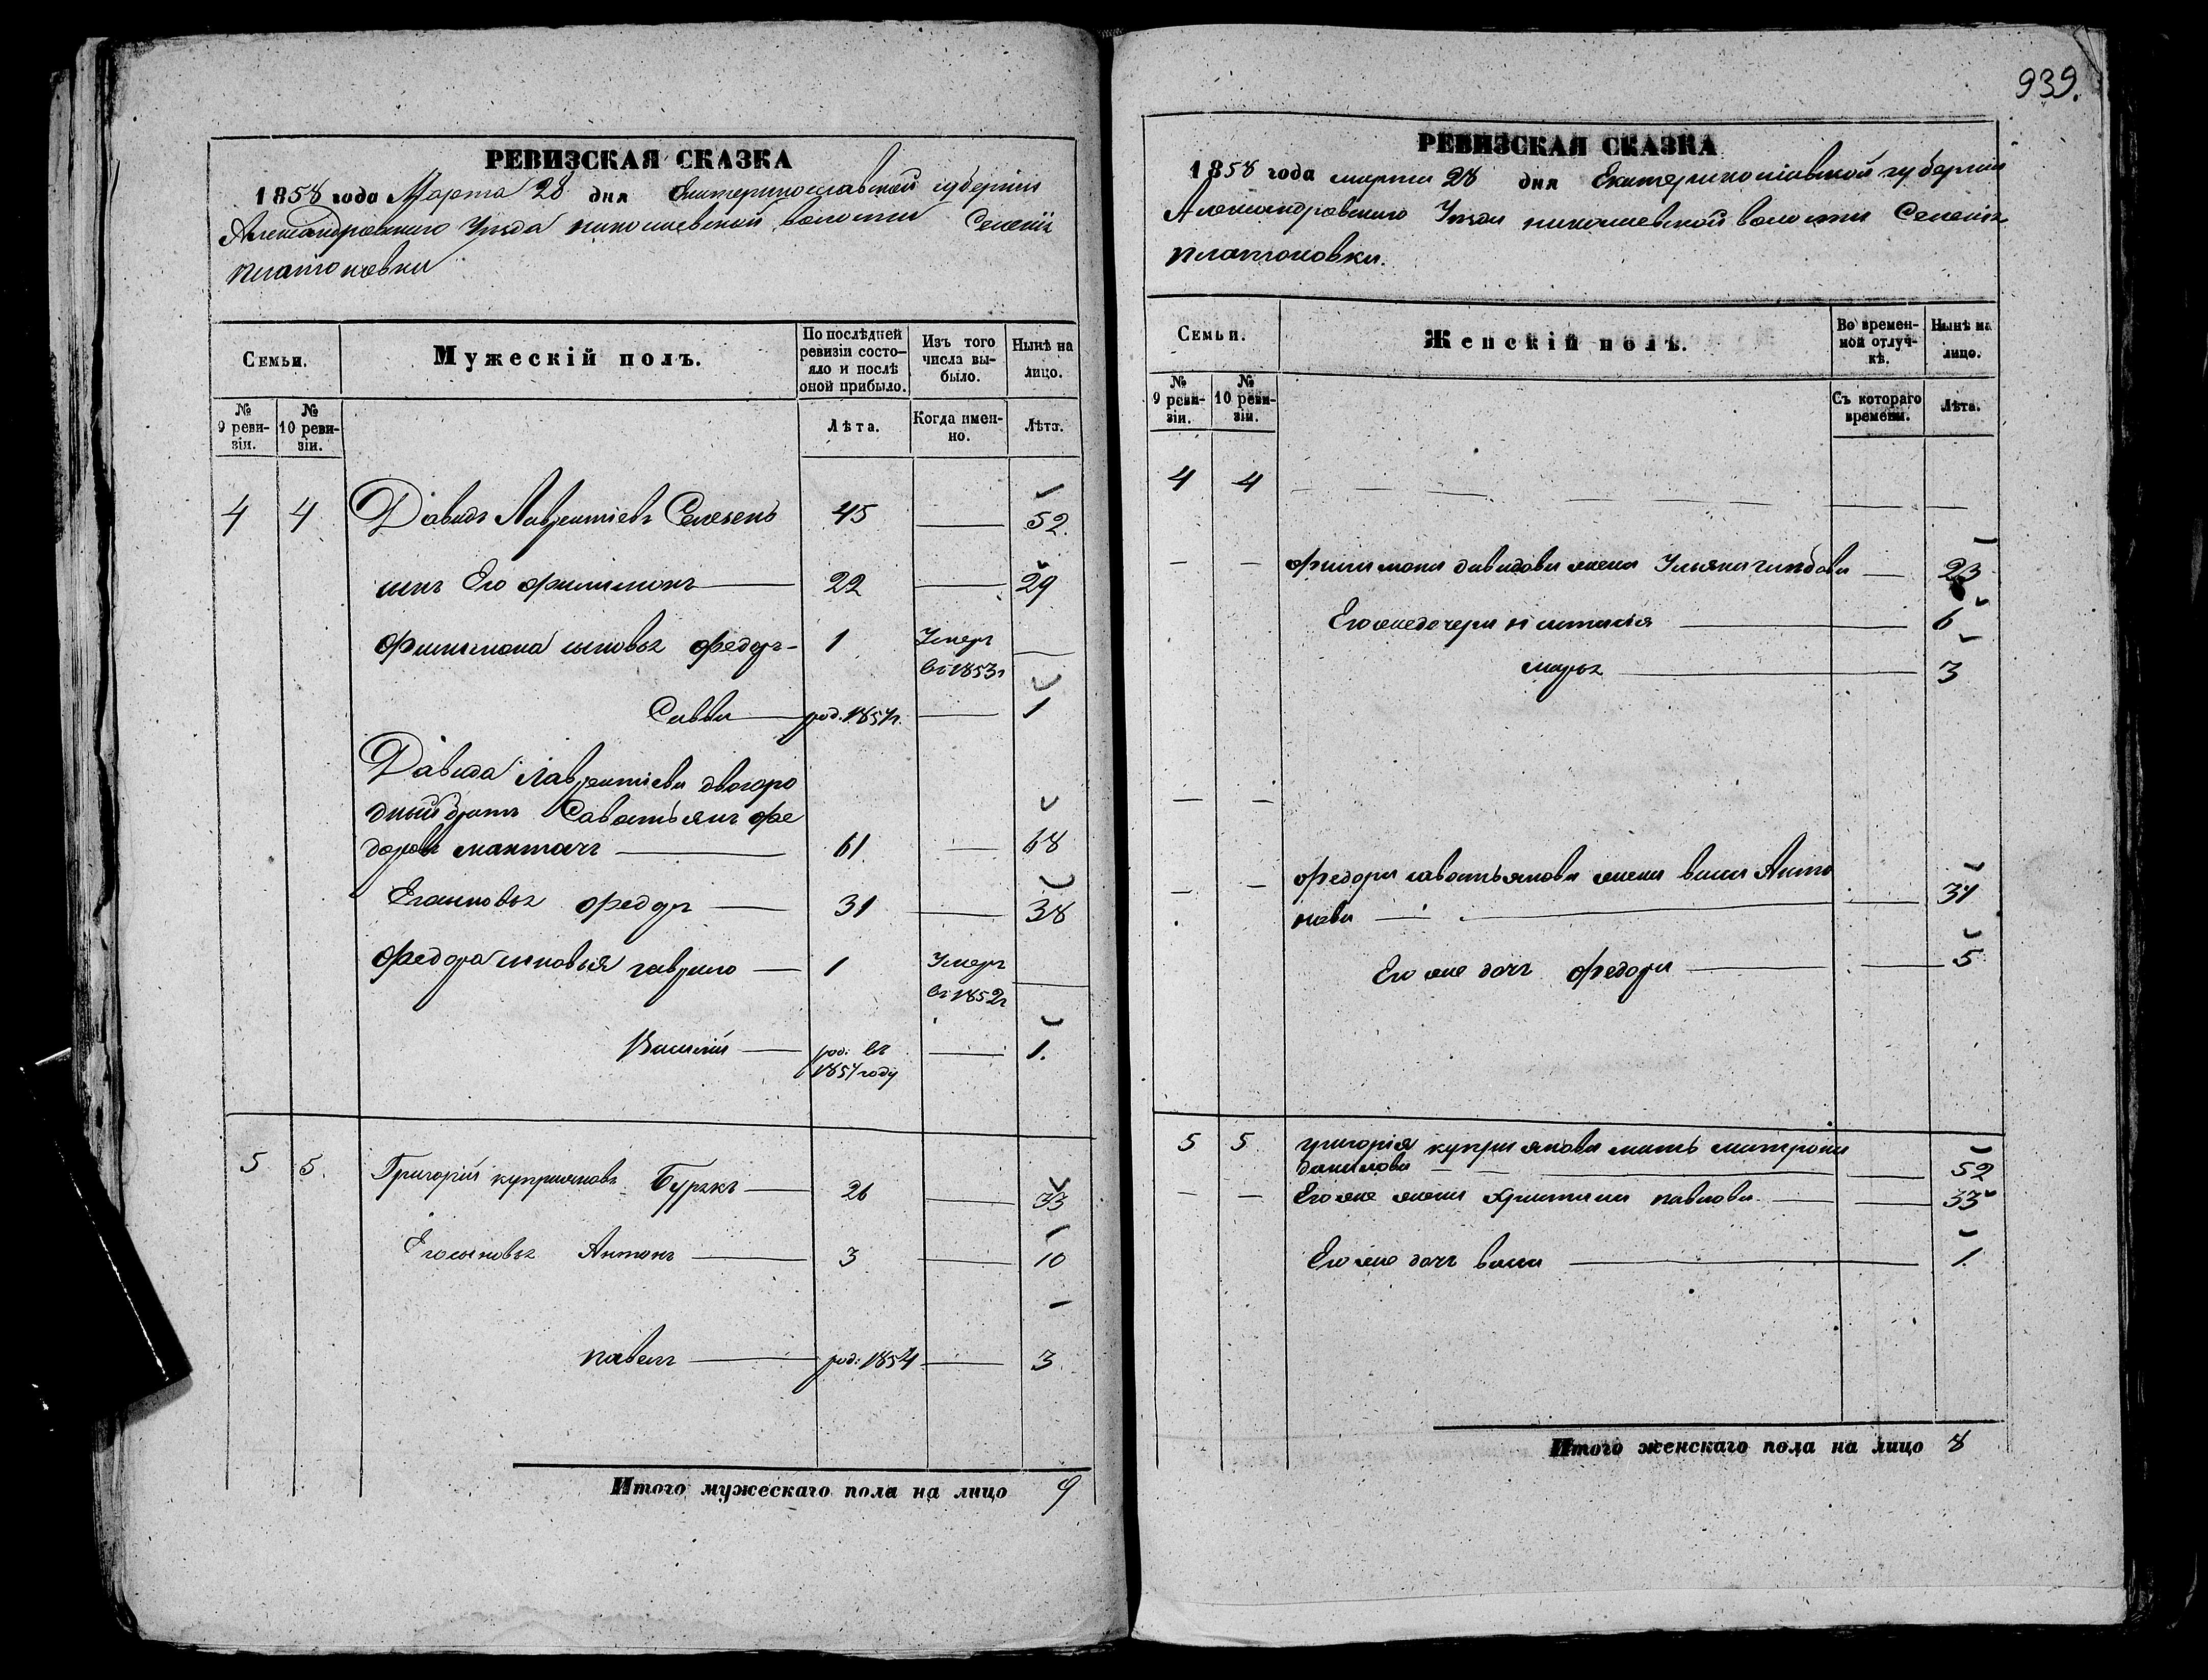 РЕВИЗСКАЯ СКАЗКА
1858 года Марта 28 дня Екатеринославской губернии
Александровского Уезда волости Селенія
платоновки
Семьи.
Мужескій полъ.
По послѣдней ревизіи состо-
яло и послѣ
оной прибыло.
Изъ того
числа вы-
было.
Нынѣ на
лицо.
№
9 реви-
зіи.
№
10 реви-
зіи.
Лѣта.
Когда имен-
но.
Лѣта.
4 4 Давидъ Лаврентіевъ Селезень 45 — 52.
сынъ Его филимонъ — 22 — 29
филимона сыновья федоръ — 1 Умеръ
въ 1853г —
Савва — род. 1857г. — 1
Давида Лаврентіева двоюро
дный братъ Саватьянъ фе
доровъ — 61 — 68
Его сыновья федоръ — 31 — 38
федора сыновья гаврило — 1 Умеръ
въ 1852г —
Василій — род: въ — 1.
1857 году
5 5. Григорій куприяновъ — 26 — 33
Его сыновья Антонъ — 3 — 10
павелъ — род: 1854 — 3
Итого мужескаго пола на лицо 9
939.
РЕВИЗСКАЯ СКАЗКА
1858 года марта 28 дня Екатеринославской губернии
Александровского Уезда волости Селенія
платоновки.
Семьи.
Женскій полъ.
Во времен-
ной отлуч-
кѣ.
Нынѣ на
лицо.
№
9 реви-
зіи.
№
10 реви-
зіи.
Съ котораго
времени.
Лѣта.
4 4 — — — — — — — —
— — филимона давидова жена Ульяна глебова — 23
Его же дочери настасія — 6
марья — 3
— —
— — федора саватьянова жена васса Анто
нова — — 31
Его же дочь федора — — 5
5 5 григорія куприянова мать матрона
данилова — — 52
— — Его же жена христина павлова — — 33
Его же дочь васса — 1.
Итого женскаго пола на лицо 8